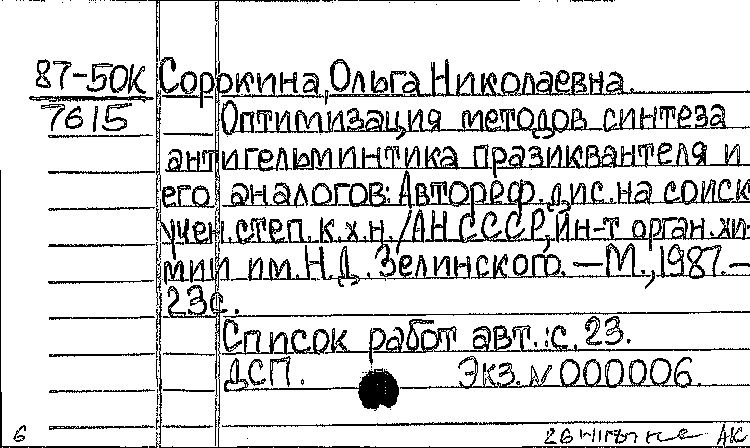 87-50К Сорокина, Ольга Николаевна.
7615 Оптимизация методов синтеза
антигельминтика празиквантеля и
его аналогов: Автореф. дис. на соиск
учен. степ. к.х.н. /АН СССР, Ин-т орган. хи-
мии им. Н.Д. Зелинского. — М., 1987. —
23с.
Список работ авт.: с. 23.
ДСП. Экз. № 000006.
6 АК